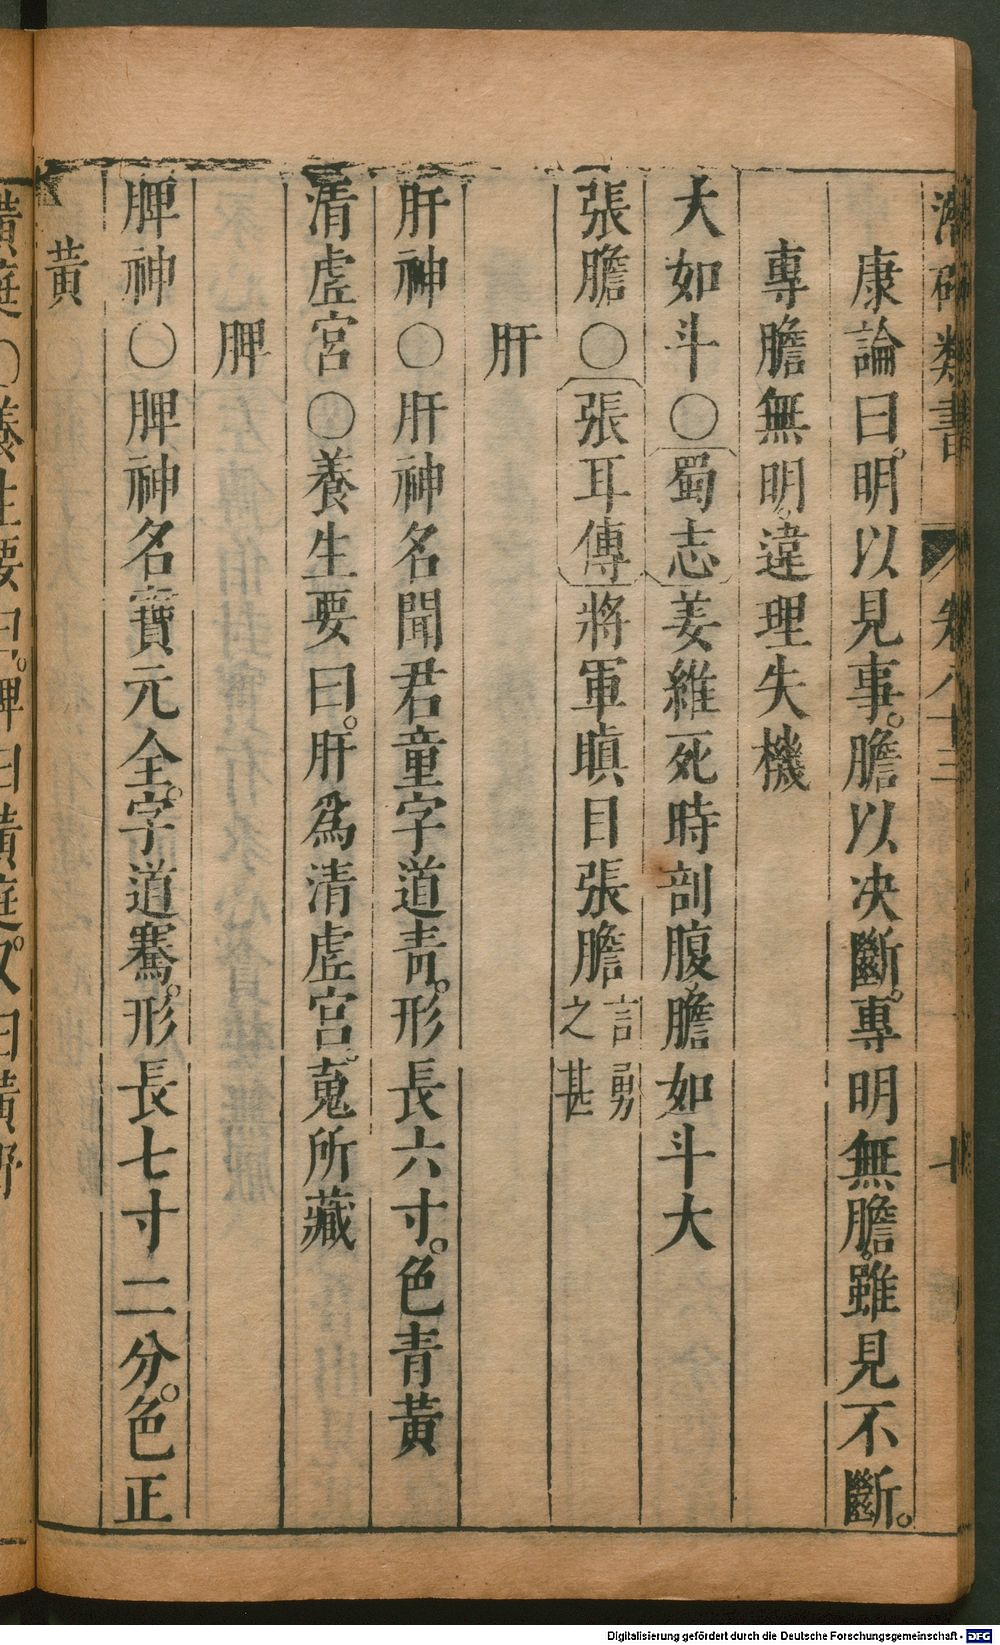 潛確類書 卷八十三 十
康論曰。明以見事。膽以决斷。專明無膽。雖見不斷。
專膽無明。違理失機
大如斗○蜀志姜維死時剖腹。膽如斗大
張膽○張耳傳將軍瞋目張膽言勇之甚
肝
肝神○肝神名聞君童字道青。形長六寸。色青黃
清虗宮○養生要曰。肝爲清虗宮。䰟所藏
脾
脾神○脾神名寶元全。字道騫。形長七寸二分。色正
黃
黃庭○養生要曰。脾曰黃庭。又曰黃野
Digitalisierung gefördert durch die Deutsche Forschungsgemeinschaft - DFG